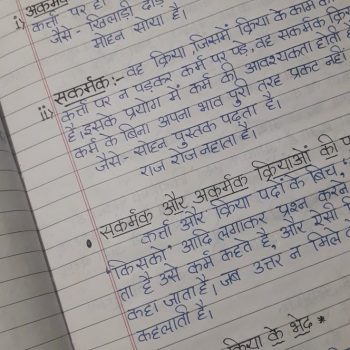 i) अकर्मक
कर्त्ता पर ही
जैसे- खिलाड़ी दौड़
मोहन सोया है।
ii) सकर्मक:- वह क्रिया, जिसमें क्रिया के काम का
कर्त्ता पर न पड़कर कर्म पर पड़े, वह सकर्मक क्रिया
हैं। इसके प्रयोग में कर्म की आवश्यकता होती है
कर्म के बिना अपना भाव पुरी तरह प्रकट नहीं
जैसे- सोहन पुस्तक पढ़ता है।
राज रोज नहाता है।
सकर्मक और अकर्मक क्रियाओं की प
• कर्त्ता और क्रिया पदों के बिच,
'किसको' आदि लगाकर प्रश्न करने
ता है उसे कर्म कहते है, और ऐसी
कहा जाता है। जब उत्तर न मिले
कहलाती है।
क्रिया के भेद *